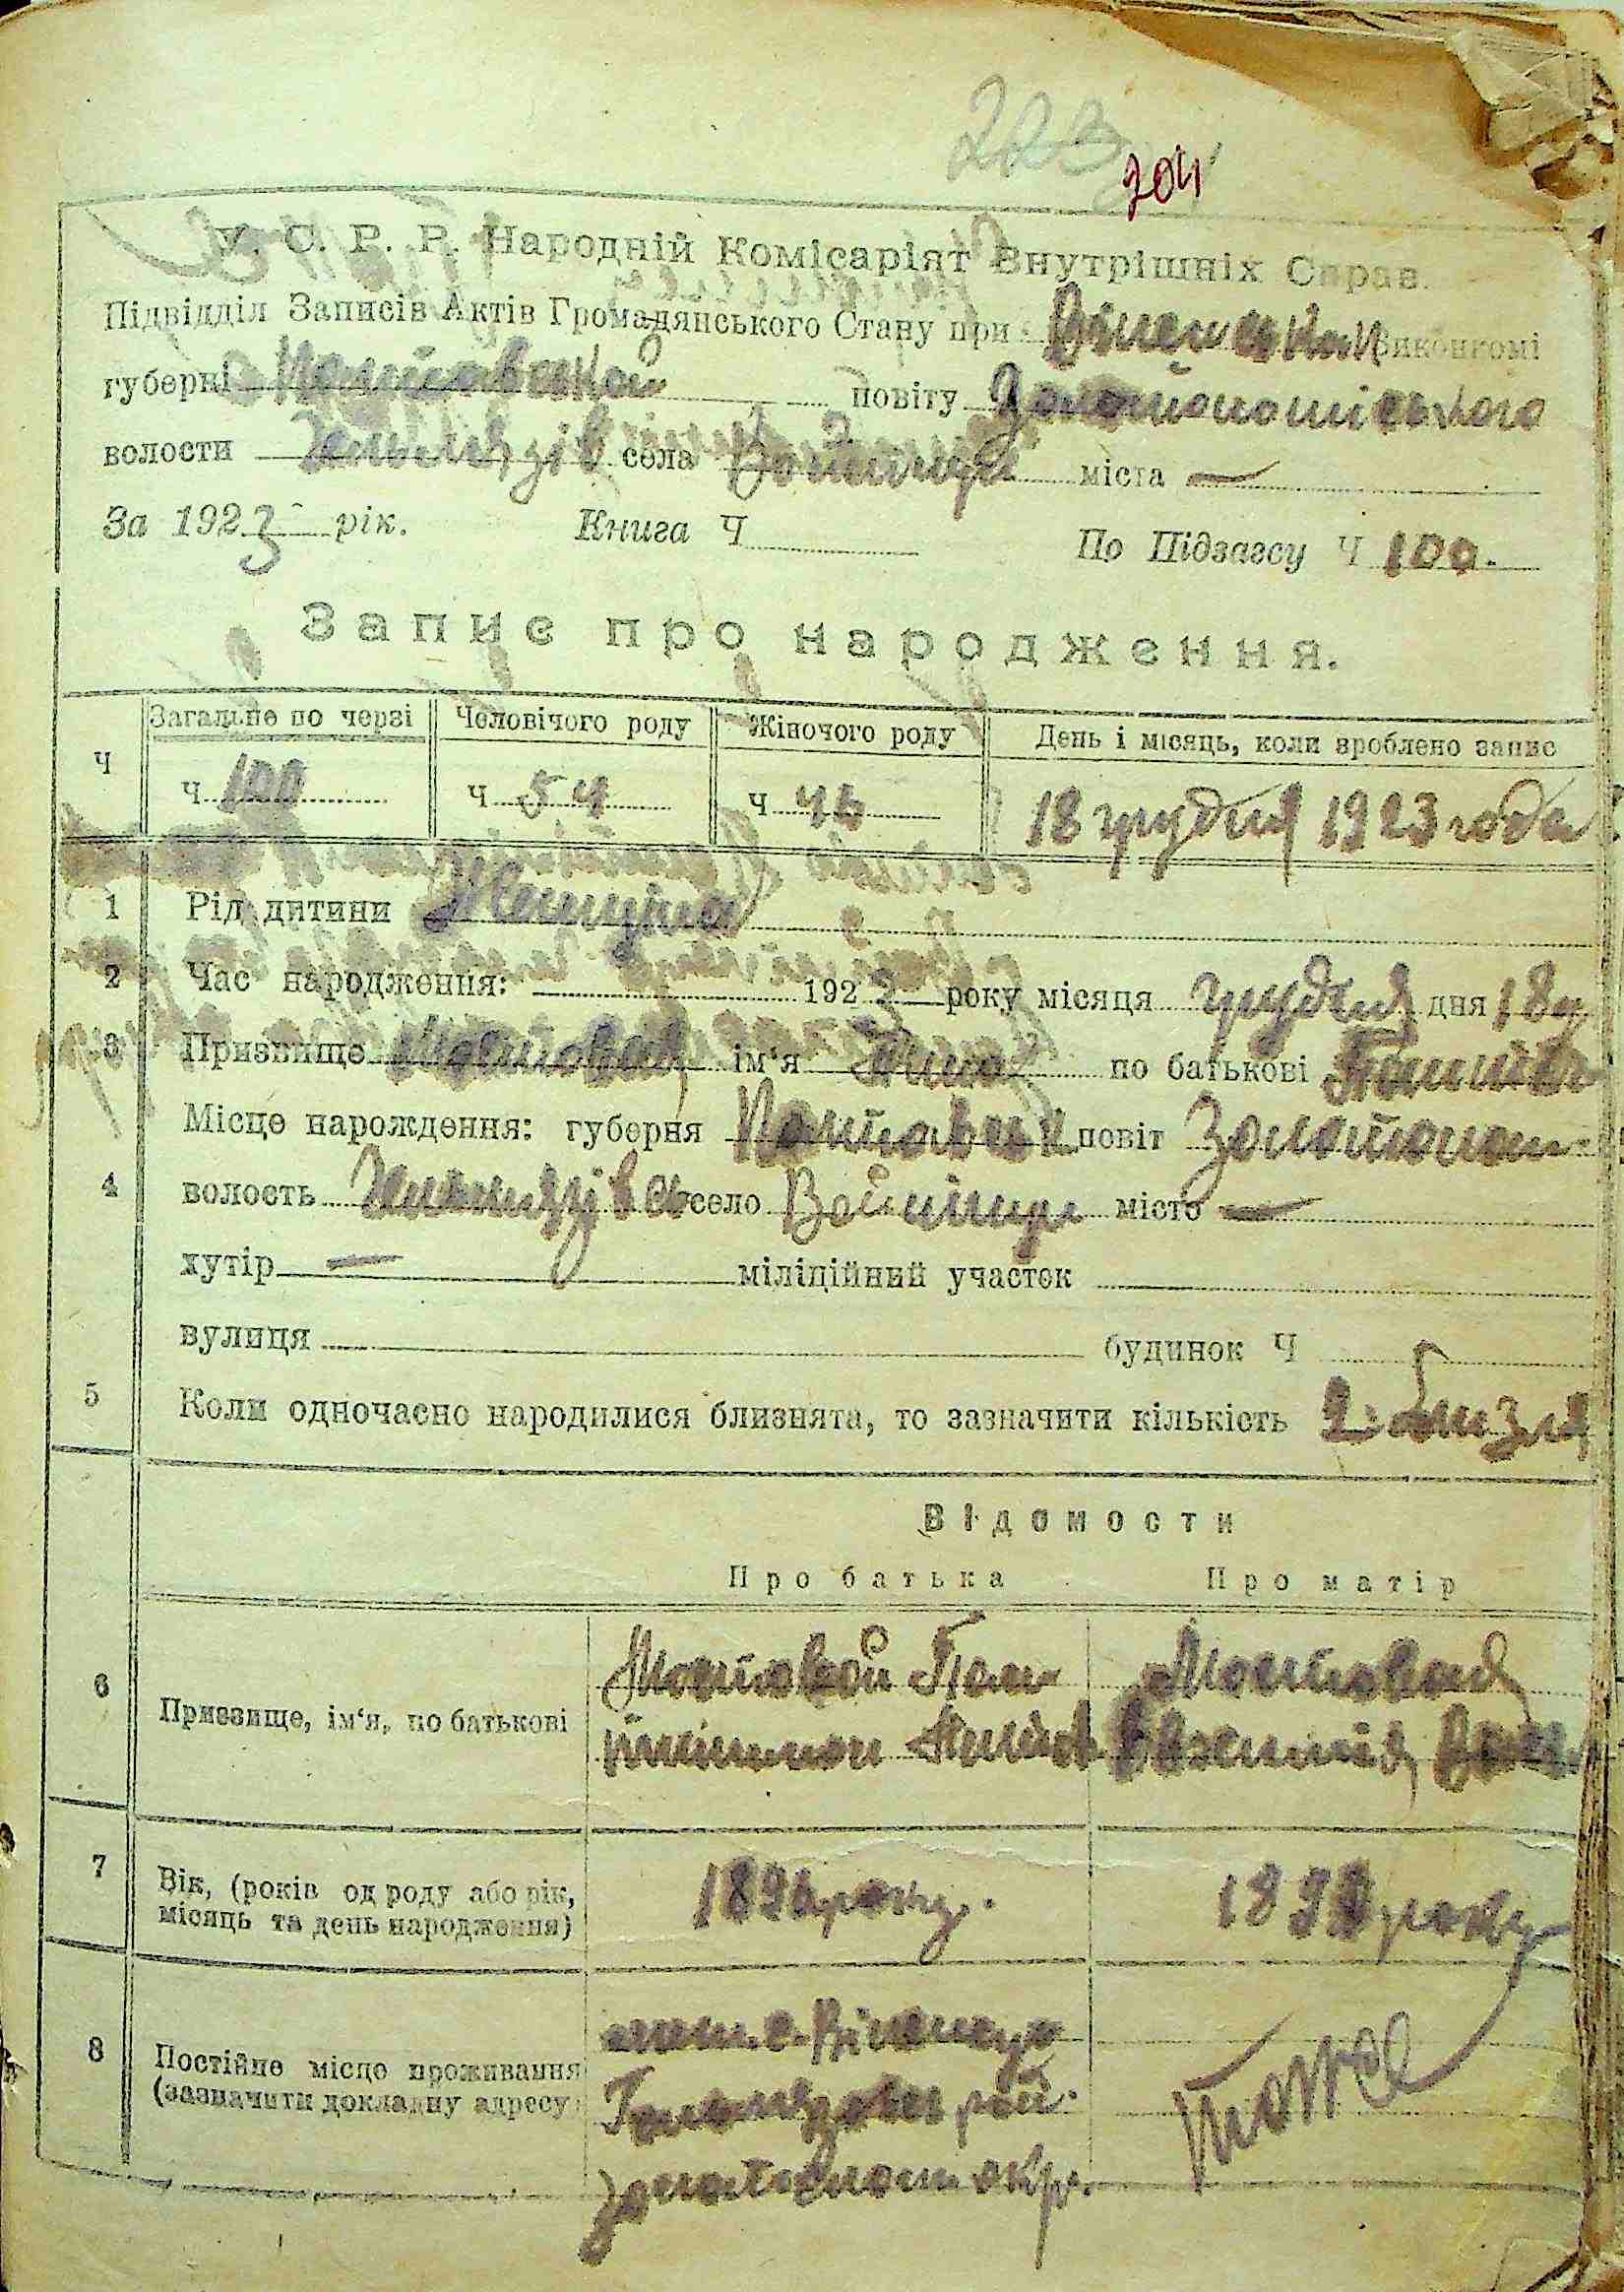 223
204
У. С. Р. Р. Народній Комісаріят Внутрішніх Справ.
Підвідділ Записів Актів Громадянського Стану при Виконкомі
губерні Полтавської повіту Золотоноського
волости села Войинци міста —
За 1923 рік. Книга Ч По Підзагсу Ч 100.
Запис про народження.
Ч Загальне по черзі Человічого роду Жіночого роду День і місяць, коли зроблено запис
Ч 100 Ч 54 Ч 46 18 грудня 1923 года
1 Рід дитини Женщина
2 Час народження: 1923 року місяця грудня дня 18
3 Призвище Мостовая ім‘я по батькові
Місце нарождення: губерня Полтавськ повіт Золотонош
4 волость село Войинци місто —
хутір — міліційний участок
вулиця будинок Ч
5 Коли одночасно народилися близнята, то зазначити кількість 2 близн
Відомости
Про батька Про матір
6 Призвище, ім‘я, по батькові
Мостовой Пан Мостовая
Евгения
7 Вік, (років од роду або рік, місяць та день народження)
1896 року. року
8 Постійне місце проживання (зазначити докладну адресу)
рай.
Золотонош окр.
тоже